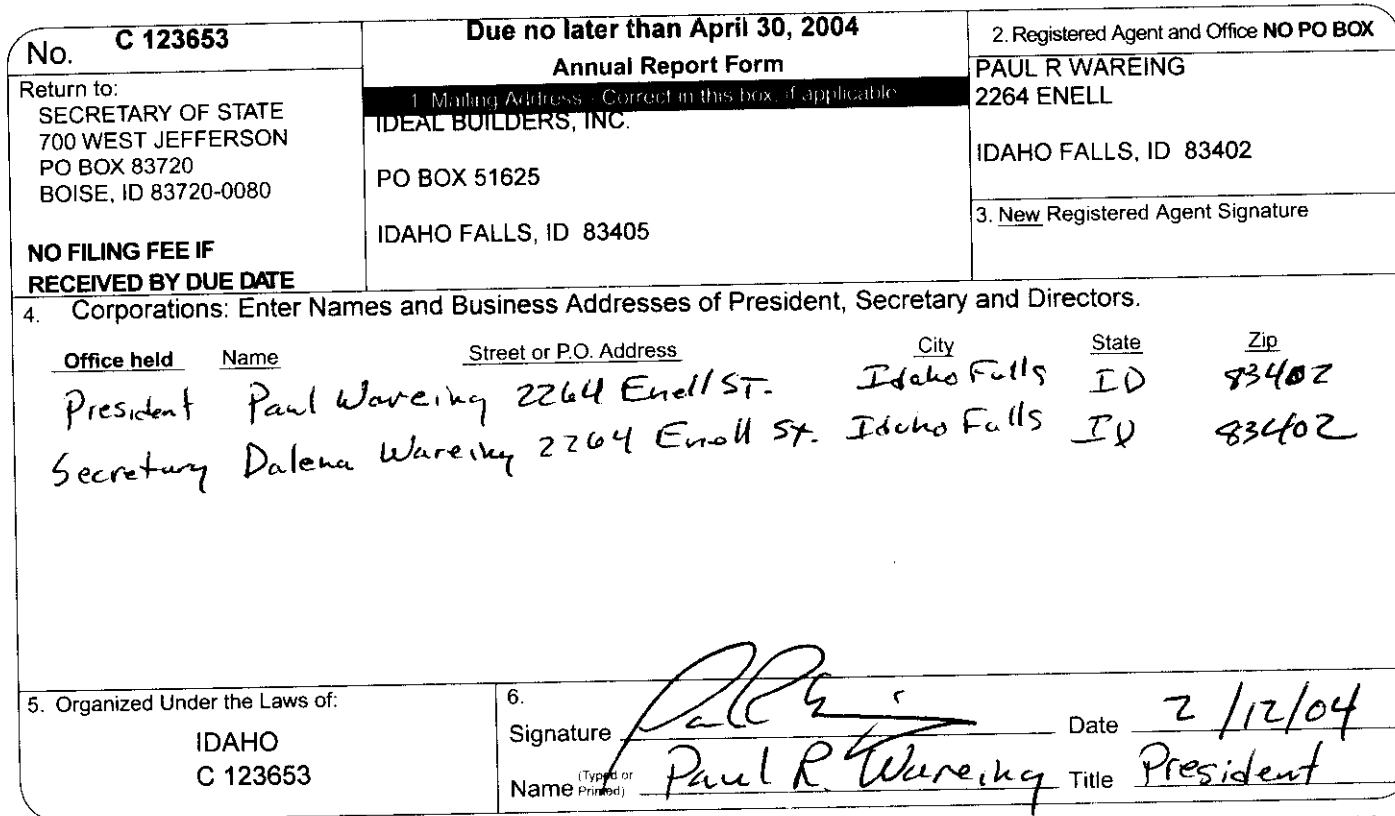 No. C 123653
Return to:
SECRETARY OF STATE
700 WEST JEFFERSON
PO BOX 83720
BOISE, ID 83720-0080
NO FILING FEE IF
RECEIVED BY DUE DATE
Due no later than April 30, 2004
Annual Report Form
1. Mailing Address - Correct in this box, if applicable
IDEAL BUILDERS, INC.
PO BOX 51625
IDAHO FALLS, ID 83405
2. Registered Agent and Office NO PO BOX
PAUL R WAREING
2264 ENELL
IDAHO FALLS, ID 83402
3. New Registered Agent Signature
4. Corporations: Enter Names and Business Addresses of President, Secretary and Directors.
Office held Name Street or P.O. Address City State Zip
President Paul Wareing 2264 Enell ST. Idaho Falls ID 83402
Secretary Dalena Wareing 2264 Enell St. Idaho Falls ID 83402
5. Organized Under the Laws of:
IDAHO
C 123653
6.
Signature Date 2/12/04
Name (Typed or Printed) Paul R. Wareing Title President